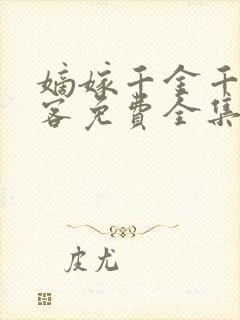 嫡嫁千金千
客免费全集
皮尤